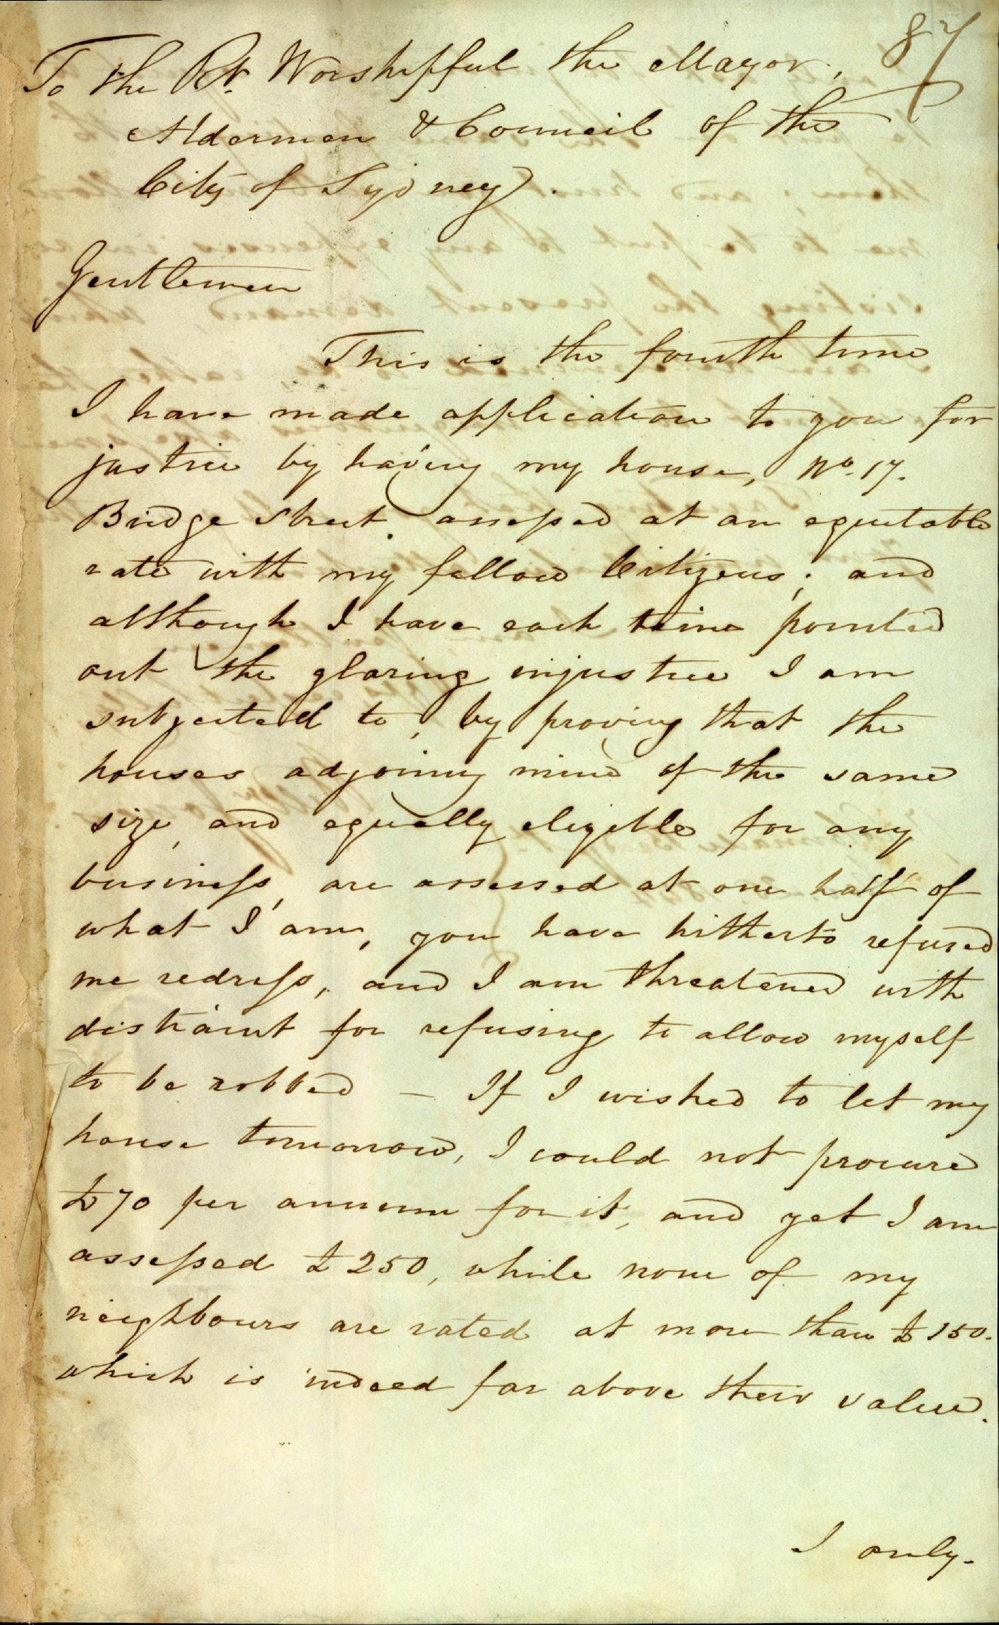 87
To the Rt. Worshipful the Mayor,
Aldermen & Council of the
City of Sydney.
Gentlemen
This is the fourth time
I have made application to you for
justice by having my house, No. 17.
Bridge Street assessed at an equitable
rate with my fellow Citizens; and
although I have each time pointed
out the glaring injustice I am
subjected to, by proving that the
houses adjoining mine of the same
size, and equally eligible for any
business, are assessed at one half of
what I am, you have hitherto refused
me redress, and I am threatened with
distraint for refusing to allow myself
to be robbed – If I wished to let my
house tomorrow, I could not procure
£70 per annum for it, and yet I am
assessed £250, while none of my
neighbours are rated at more than £150.
which is indeed far above their value.
I only.